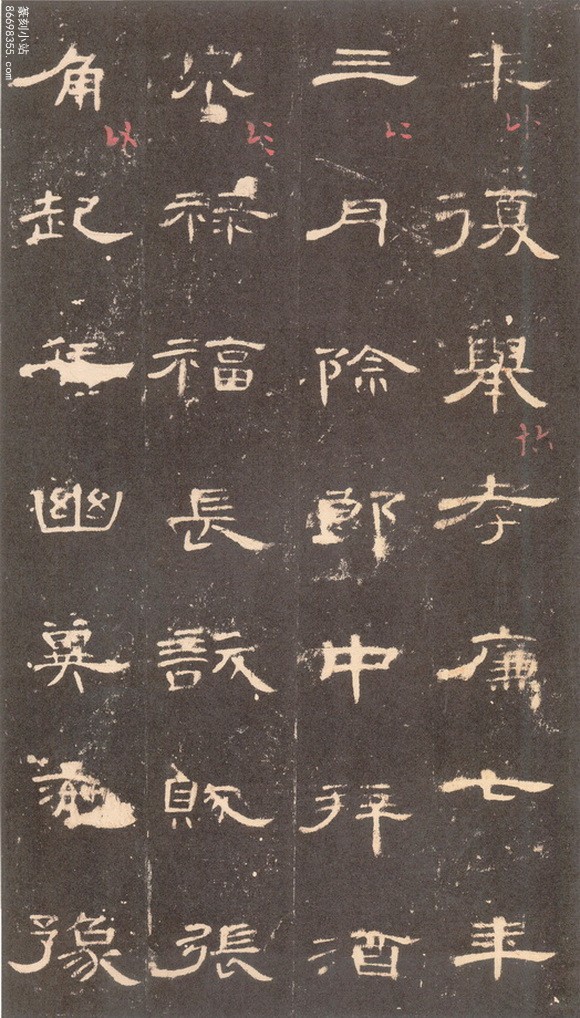 年復舉孝廉七年
三月除郎中拜酒
泉祿福長訞賊張
角起兵幽冀兗豫
篆刻小站
86698355.com